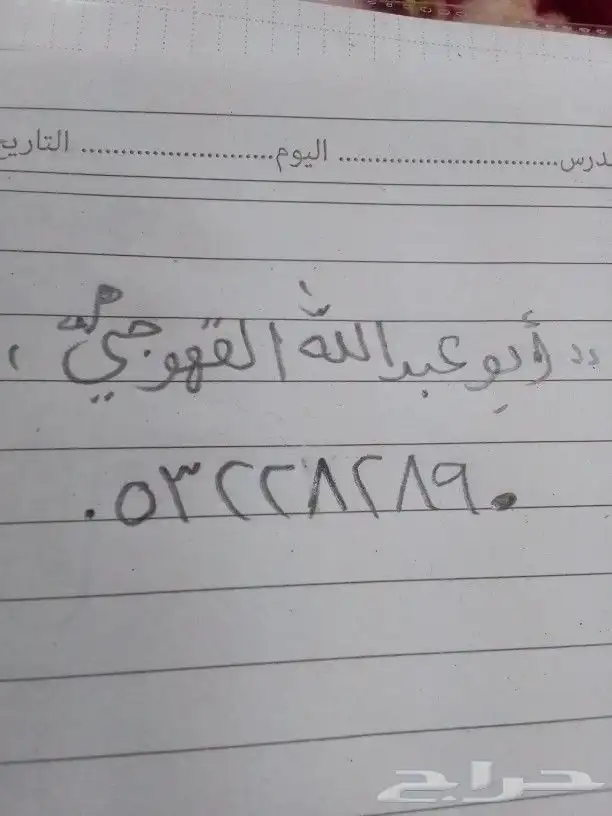 درس............................ اليوم......................... التاريخ
" أبو عبدالله القهوجي "
٠٥٣٢٢٨٢٨٩٠
حراج